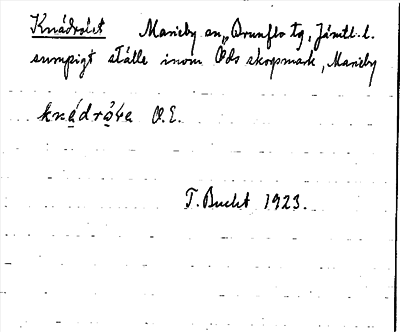 Knådrået Marieby sn, Brunflo tg, Jämtl. l.
sumpigt ställe inom Ods skogsmark, Marieby
O.E.
T. Bucht 1923.